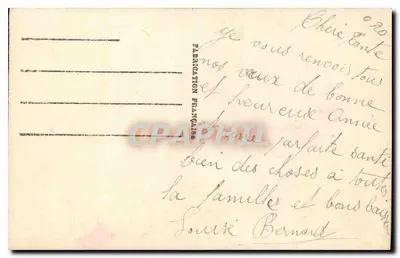 020
Chère Tante
Je vous renvois tous
nos vœux de bonne
et heureuse Année
parfaite santé
bien des choses à toutes
la familles et bons baise
Louise Bernard
FABRICATION FRANÇAISE
CPARAMA.COM